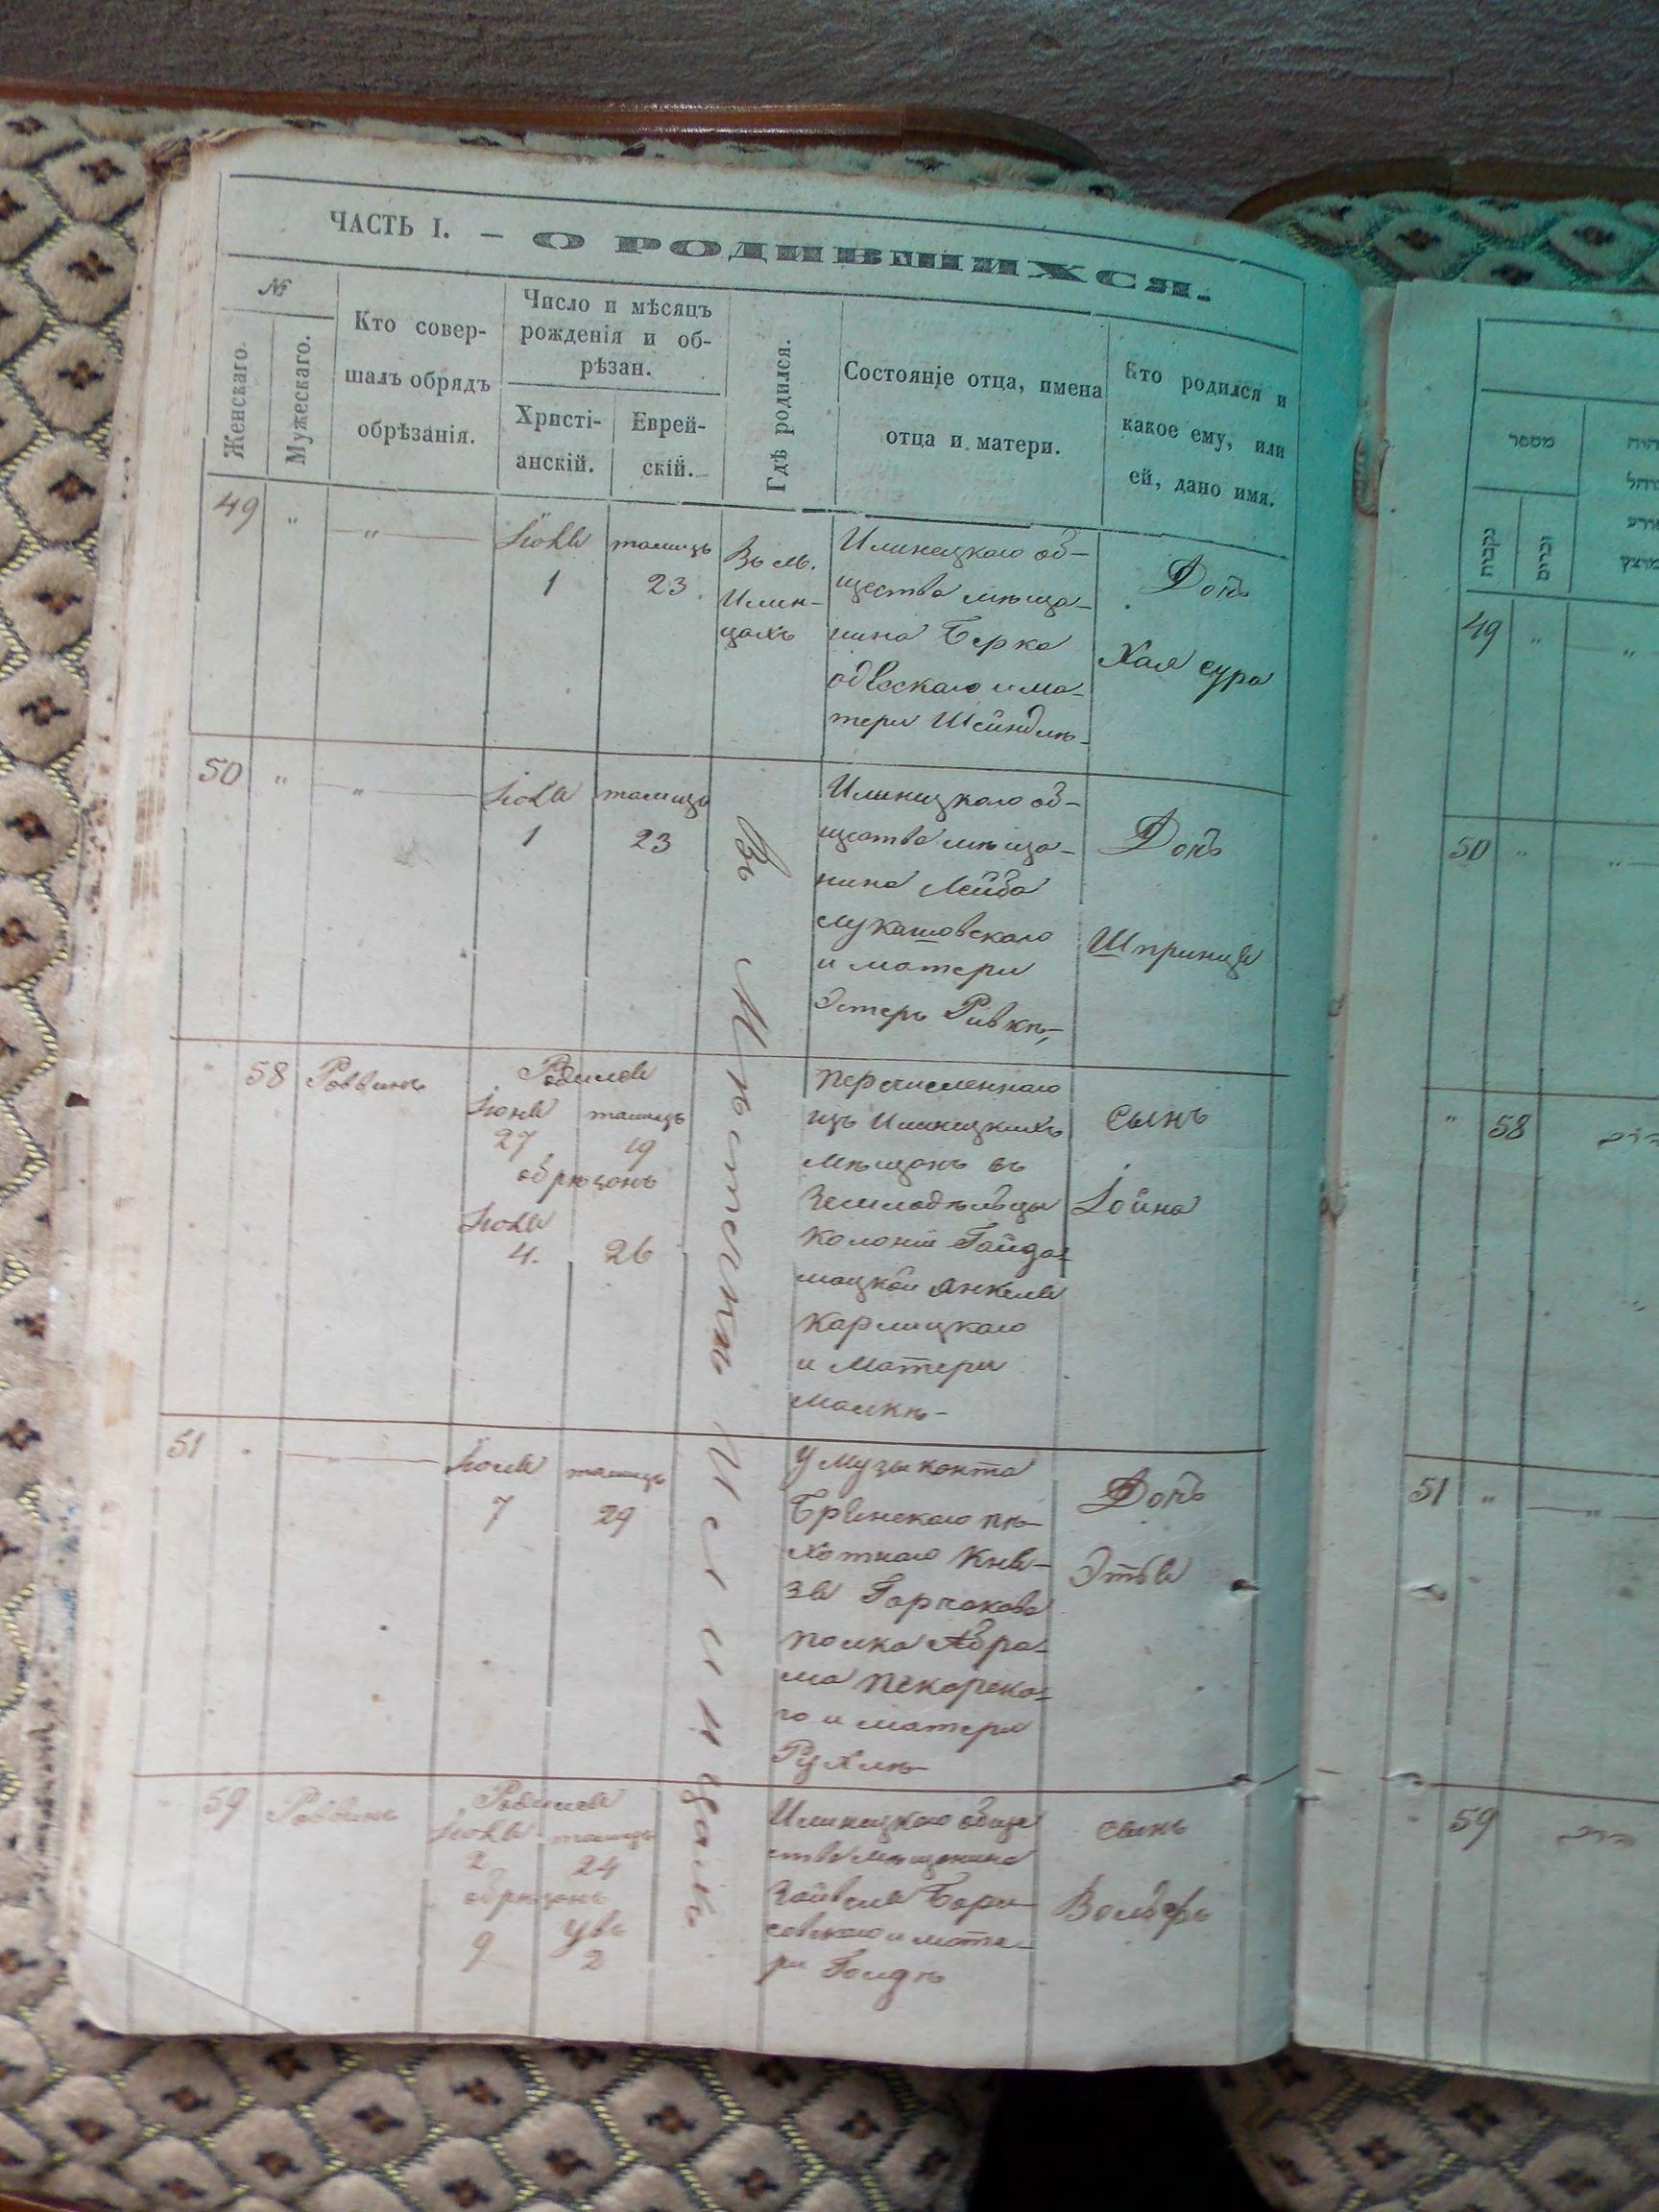 ЧАСТЬ I. — О РОДИВШИХСЯ.
№
Женскаго.
Мужескаго.
Кто совер-
шалъ обрядъ
обрѣзанія.
Число и мѣсяцъ
рожденія и об-
рѣзан.
Христі-
анскій.
Еврей-
скій.
Гдѣ родился.
Состояніе отца, имена
отца и матери.
Кто родился и
какое ему, или
ей, дано имя.
49 " — " — Іюля
1
тамузъ
23
Въ м.
Илин-
цахъ
Илинецкаго об-
щества мѣща-
нина Берка
одесскаго и ма-
тери Шейндлѣ
Дочь
Хая сура
50 " — " — Іюля
1
тамузъ
23
Илинецкаго об-
щества мѣща-
нина Лейба
лукашовскаго
и матери
Эстеръ Ривкѣ
Дочь
Шпринця
Въ Мѣстечкѣ Илинцахъ
" 58 Раввинъ
Родился
Іюня
27
тамузъ
19
обрѣзанъ
Іюля
4.
26
перечисленнаго
изъ Илинецкихъ
мѣщанъ въ
Земледѣльцы
Колоніи Гайда-
мацкой Янкеля
Карлицкаго
и Матери
малкѣ
сынъ
Іойна
51 " — " — Іюля
7
тамузъ
29
у музыканта
пѣ-
хотнаго Кня-
зя Горчакова
полка Абра-
ма пекарска-
го и матери
Рухлѣ
Дочь
Этля
" 59 Раввинъ
Родился
Іюля
2
тамузъ
24
обрѣзанъ
9
Увъ
2
Илинецкаго обще
ства мѣщанина
Бори-
совскаго и мате-
ри Голдѣ
сынъ
Вольфъ
מספר
נקבות
זכרים
49 " "
50 " "
" 58
51 " — " —
" 59